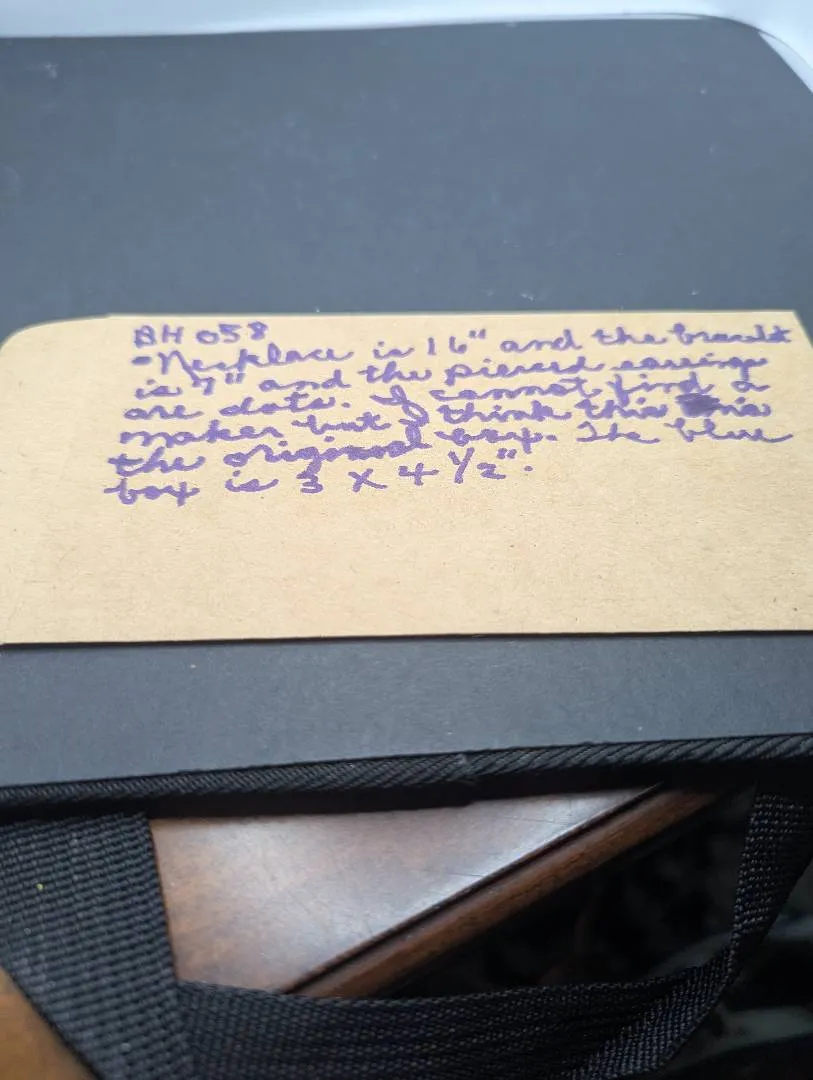 BH 058
- Necklace is 16" and the bracelet
is 7" and the pierced earrings
are dots. I cannot find a
maker but I think this is
the original box. The blue
box is 3 x 4 1/2".